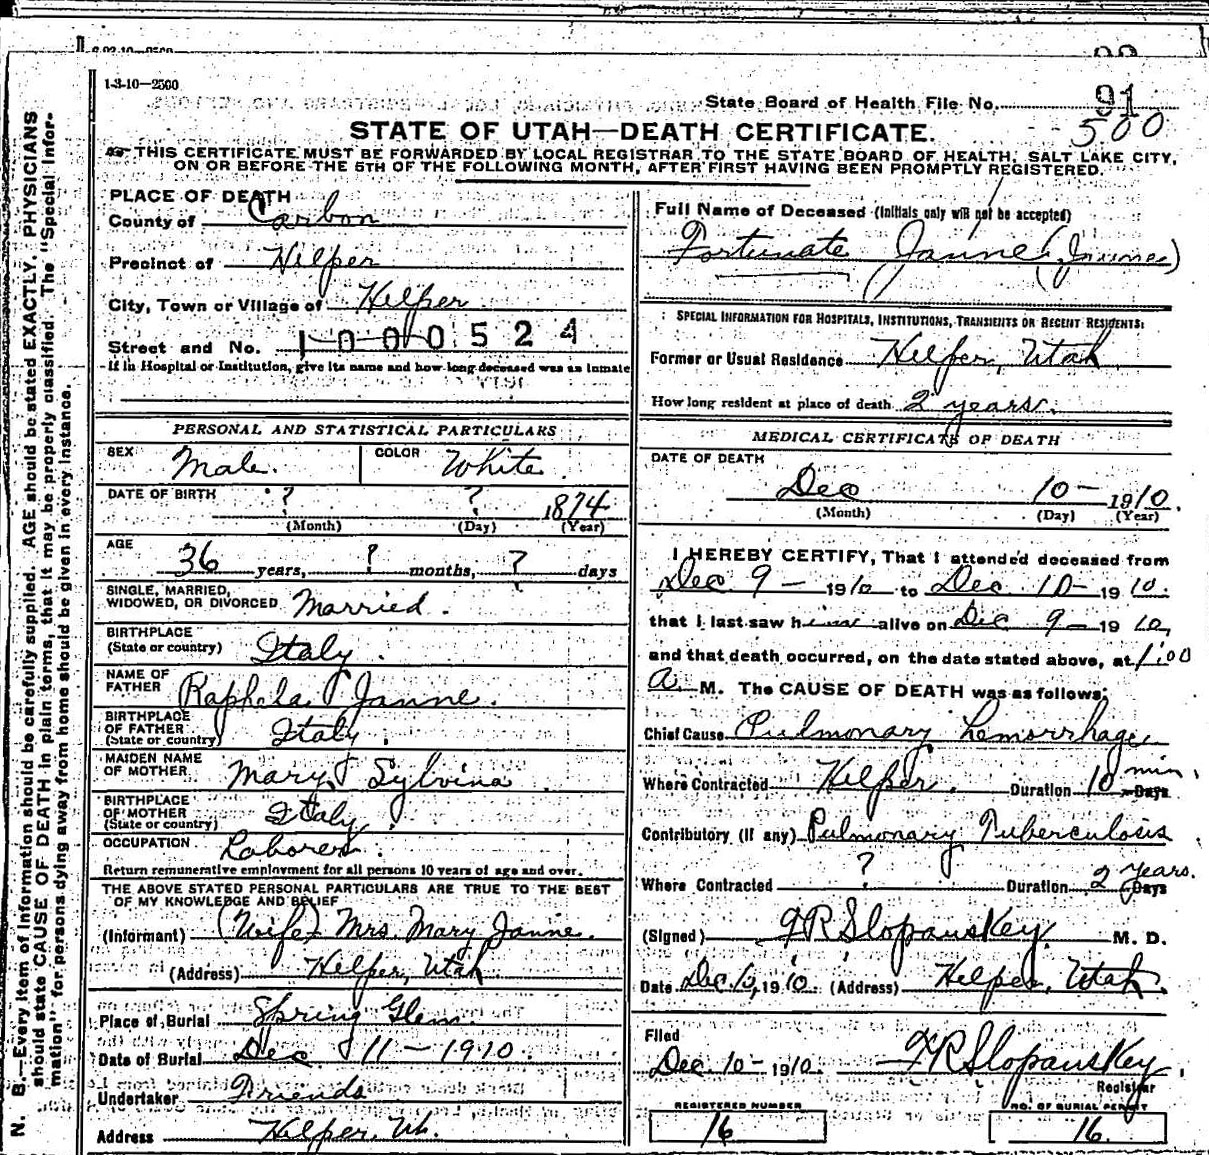 1-3-10—2500
State Board of Health File No. 91
500
STATE OF UTAH—DEATH CERTIFICATE.
THIS CERTIFICATE MUST BE FORWARDED BY LOCAL REGISTRAR TO THE STATE BOARD OF HEALTH, SALT LAKE CITY,
ON OR BEFORE THE 5TH OF THE FOLLOWING MONTH, AFTER FIRST HAVING BEEN PROMPTLY REGISTERED.
N. B.—Every item of information should be carefully supplied. AGE should be stated EXACTLY. PHYSICIANS
should state CAUSE OF DEATH in plain terms, that it may be properly classified. The "Special Infor-
mation" for persons dying away from home should be given in every instance.
PLACE OF DEATH
County of Carbon
Precinct of Helper
City, Town or Village of Helper
Street and No. 1000524
If in Hospital or Institution, give its name and how long deceased was an inmate
PERSONAL AND STATISTICAL PARTICULARS
SEX Male. COLOR White
DATE OF BIRTH ? ? 1874
(Month) (Day) (Year)
AGE 36 years, ? months, ? days
SINGLE, MARRIED,
WIDOWED, OR DIVORCED Married.
BIRTHPLACE
(State or country) Italy.
NAME OF
FATHER Raphela Janne.
BIRTHPLACE
OF FATHER
(State or country) Italy.
MAIDEN NAME
OF MOTHER Mary Sylvina
BIRTHPLACE
OF MOTHER
(State or country) Italy.
OCCUPATION Laborer.
Return remunerative employment for all persons 10 years of age and over.
THE ABOVE STATED PERSONAL PARTICULARS ARE TRUE TO THE BEST
OF MY KNOWLEDGE AND BELIEF
(Informant) (Wife) Mrs. Mary Janne.
(Address) Helper, Utah
Place of Burial Spring Glen.
Date of Burial Dec 11—1910.
Undertaker Friends
Address Helper, Ut.
Full Name of Deceased (Initials only will not be accepted)
Fortunate Janne
SPECIAL INFORMATION FOR HOSPITALS, INSTITUTIONS, TRANSIENTS OR RECENT RESIDENTS:
Former or Usual Residence Helper, Utah
How long resident at place of death 2 years.
MEDICAL CERTIFICATE OF DEATH
DATE OF DEATH
Dec 10— 1910.
(Month) (Day) (Year)
I HEREBY CERTIFY, That I attended deceased from
Dec 9— 1910 to Dec 10— 1910.
that I last saw him alive on Dec 9— 1910,
and that death occurred, on the date stated above, at 1:00
a. M. The CAUSE OF DEATH was as follows:
Chief Cause Pulmonary hemorrhage
Where Contracted Helper. Duration 10 min. Days
Contributory (if any) Pulmonary Tuberculosis
Where Contracted ? Duration 2 Years. Days
(Signed) FR Slopanskey. M. D.
Date Dec. 10, 1910. (Address) Helper, Utah.
Filed
Dec. 10— 1910. FR Slopanskey.
Registrar
REGISTERED NUMBER NO. OF BURIAL PERMIT
16 16.